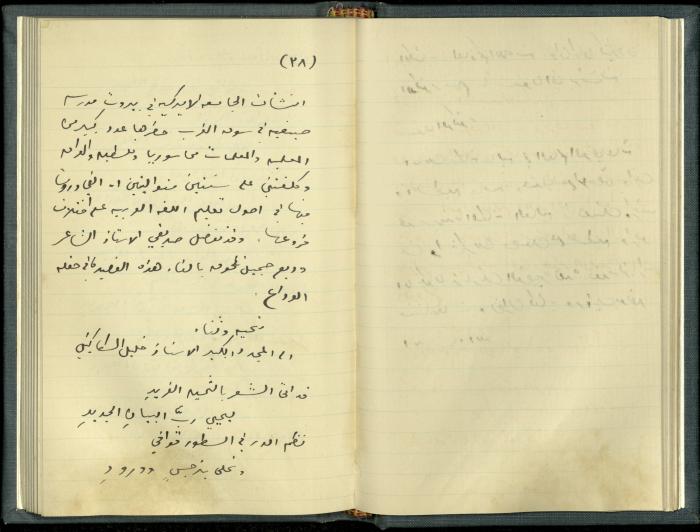 (٢٨)
انشأت الجامعه الاميركيه في بيروت مدرسه
صيفيه في سوق الغرب حضرها عدد كبير من
المعلمين والمعلمات من سوريا وفلسطين والعراق
وكلفتني على سنتين متواليتين ان القي دروسا
فيها في اصول تعليم اللغه العربيه على اختلاف
فروعها. وقد تفضل صديقي الاستاذ الشاعر
وديع جميل بالقاء هذه القصيده في حفله
الوداع.
تحيه وثناء
الى المجدد الكبير الاستاذ خليل السكاكيني
قد اتى الشعر بالتحيه الفريدِ
يحيي ربَّ البيانِ الجديدِ
نظم الدر في السطور قوافي
وتحلى بنرجسٍ وورودِ